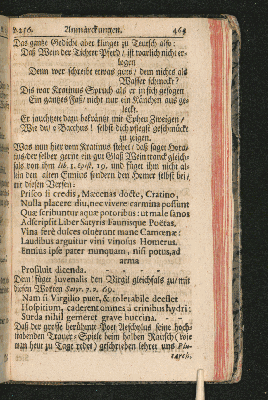 v. 256. Anmärckungen. 469
Das gantze Gedicht aber klinget zu Teutsch also:
Daß Wein der Tichter Pferd / ist warlich nicht er-
logen
Denn wer schreibt etwas guts / dem nichts als
Wasser schmeckt?
Dis war Kratinus Spruch als er in sich gesogen
Ein gantzes Faß / nicht nur ein Känchen aus ge-
leckt.
Er jauchtzete dazu bekräntzt mit Epheu Zweigen /
Wie du / o Bacchus! selbst dich pflegst geschmückt
zu zeigen.
Was nun hier vom Kratinus stehet / daß saget Hora-
tius der selber gerne ein gut Glaß Wein tranck gleich-
fals von ihm lib. 1. epist. 19. und füget ihn nicht al-
lein den alten Ennius sondern den Homer selbst bei,
Prisco si credis, Mæcenas docte, Cratino,
Nulla placere diu, nec vivere carmina possunt
Quæ scribuntur aquæ potoribus: ut male sanos
Adscripsit Liber Satyris Faunisque Poëtas.
Vina ferè dulces oluerunt mane Camœnæ:
Laudibus arguitur vini vinosus Homerus.
Ennius ipse pater nunquam, nisi potus, ad
arma
Prosiluit dicenda.
Dem füget Juvenalis den Virgil gleichfals zu / mit
diesen Worten Satyr. 7. v. 69.
Nam si Virgilio puer, & tolerabile deesset
Hospitium, caderent omnes à crinibus hydri:
Surda nihil gemeret grave buccina.
Daß der grosse berühmte Poet Aeschylus seine hoch-
trabenden Trauer-Spiele beim hollen Rausch (wie
man heut zu Tage redet) geschrieben lehret uns Plu-
tarch.